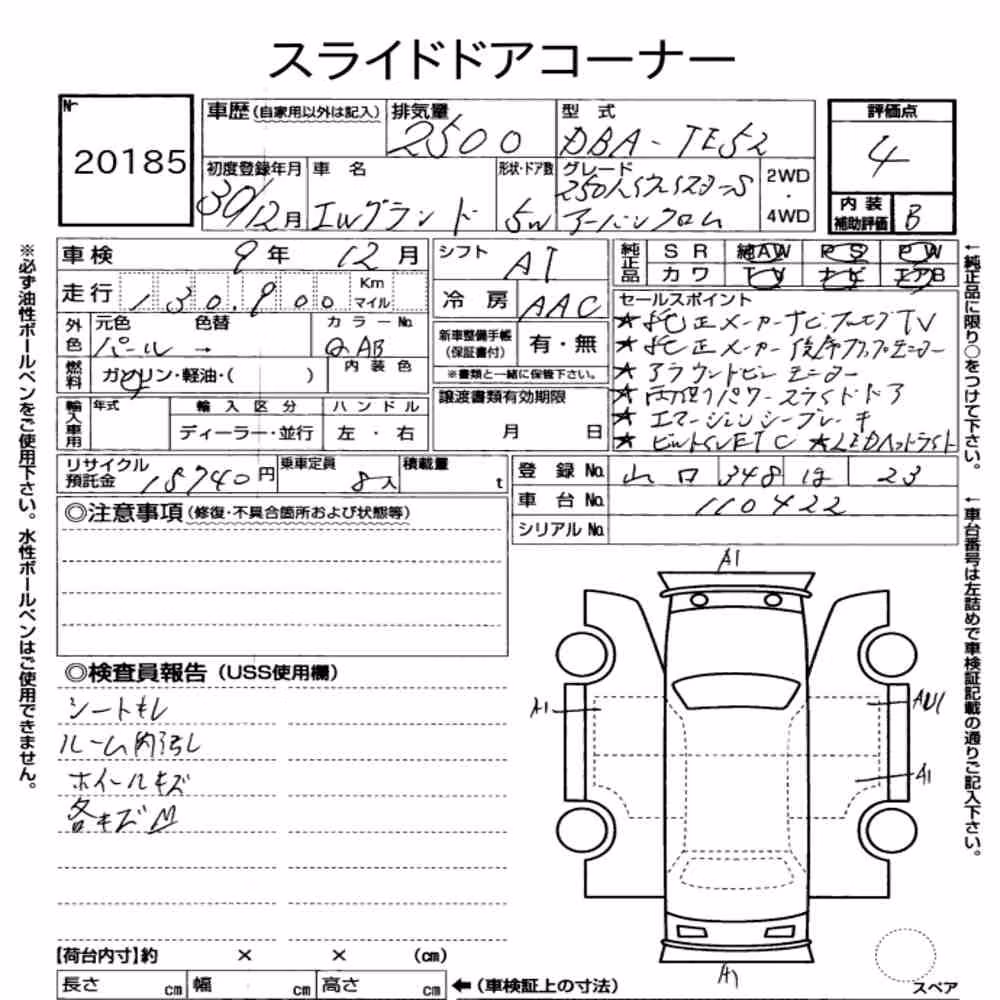 スライドドアコーナー
Nr 20185
車歴 (自家用以外は記入) 排気量 2500 型 式 DBA-TE52
評価点 4
初度登録年月 30/12月 車 名 エルグランド 形状・ドア数 5W グレード 250ハイウェイスターS アーバンクロム 2WD ・ 4WD
内装補助評価 B
車検 9年 12月
シフト AT
純正品 S R 純AW P S P W
カ ワ T V ナ ビ エアB
走行 130,900 Km マイル
冷 房 AAC
外色 元色 パール 色替 → カラーNo. QAB
燃料 ガソリン・軽油・( ) 内 装 色
新車整備手帳 (保証書付) 有・無
※書類と一緒に保管下さい。
セールスポイント
★純正メーカーナビフルセグTV
★純正メーカー後席フリップモニター
★アラウンドビューモニター
★両側パワースライドドア
★エマージェンシーブレーキ
★ビルトインETC ★LEDヘッドライト
輸入車用 年式 輸 入 区 分 ハ ン ド ル
ディーラー・並行 左 ・ 右
譲渡書類有効期限
月 日
リサイクル預託金 18740円 乗車定員 8人 積載量 t
登 録 No. 山口 348 は 23
車 台 No. 110422
シリアル No.
◎注意事項 (修復・不具合箇所および状態等)
◎検査員報告 (USS使用欄)
シートモレ
ルーム内汚レ
ホイールキズ
各キズ凹
A1
A1
AU1
A1
A1
【荷台内寸】約 × × (cm)
長さ cm 幅 cm 高さ cm ←(車検証上の寸法)
スペア
※必ず油性ボールペンをご使用下さい。水性ボールペンはご使用できません。
←純正品に限り○をつけて下さい。
←車台番号は左詰めで車検証記載の通りご記入下さい。